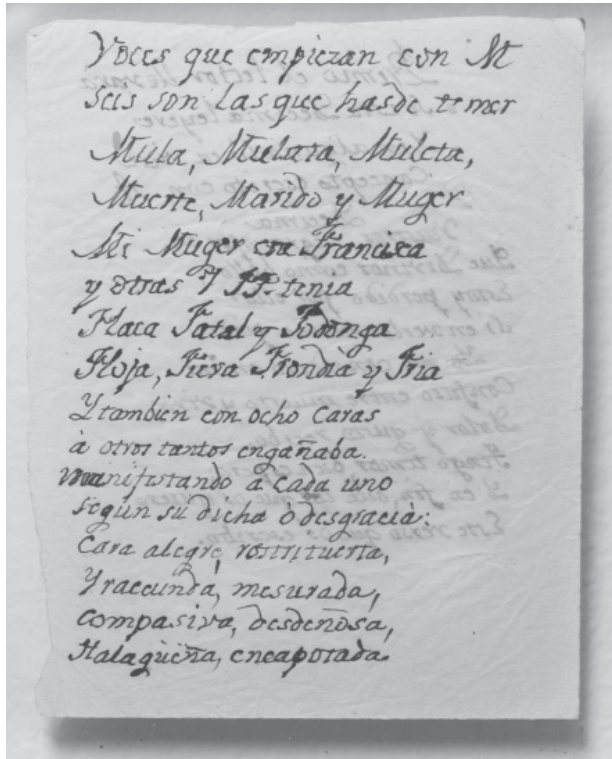 Voces que empiezan con M
seis son las que hasde temer
Mula, Mulata, Muleta,
Muerte, Marido y Muger
Mi Muger era Francisca
y otras 7 FF. tenia
Flaca Fatal y Fodonga
Floja, Fiera Frondia y Fria
Y tambien con ocho Caras
à otros tantos engañaba.
manifestando à cada uno
segun su dicha ò desgracia:
Cara alegre, rostrituerta,
Yracunda, mesurada,
compasiva, desdeñosa,
Halagüeña, encapotada